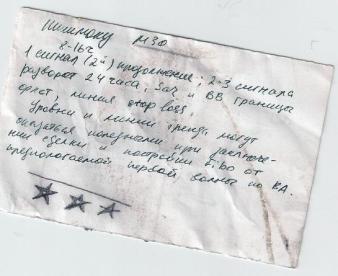 Ишимоку М30
8-16ч
1 сигнал (2й) продолжение; 2-3 сигнала
разворот 24 часа, Sar и ВВ границы
флет, линия stop loss.
Уровни и линии тренд. могут
оказаться полезными при
нии сделки и построении Fibo от
предпологаемой первой, волны по ВА.